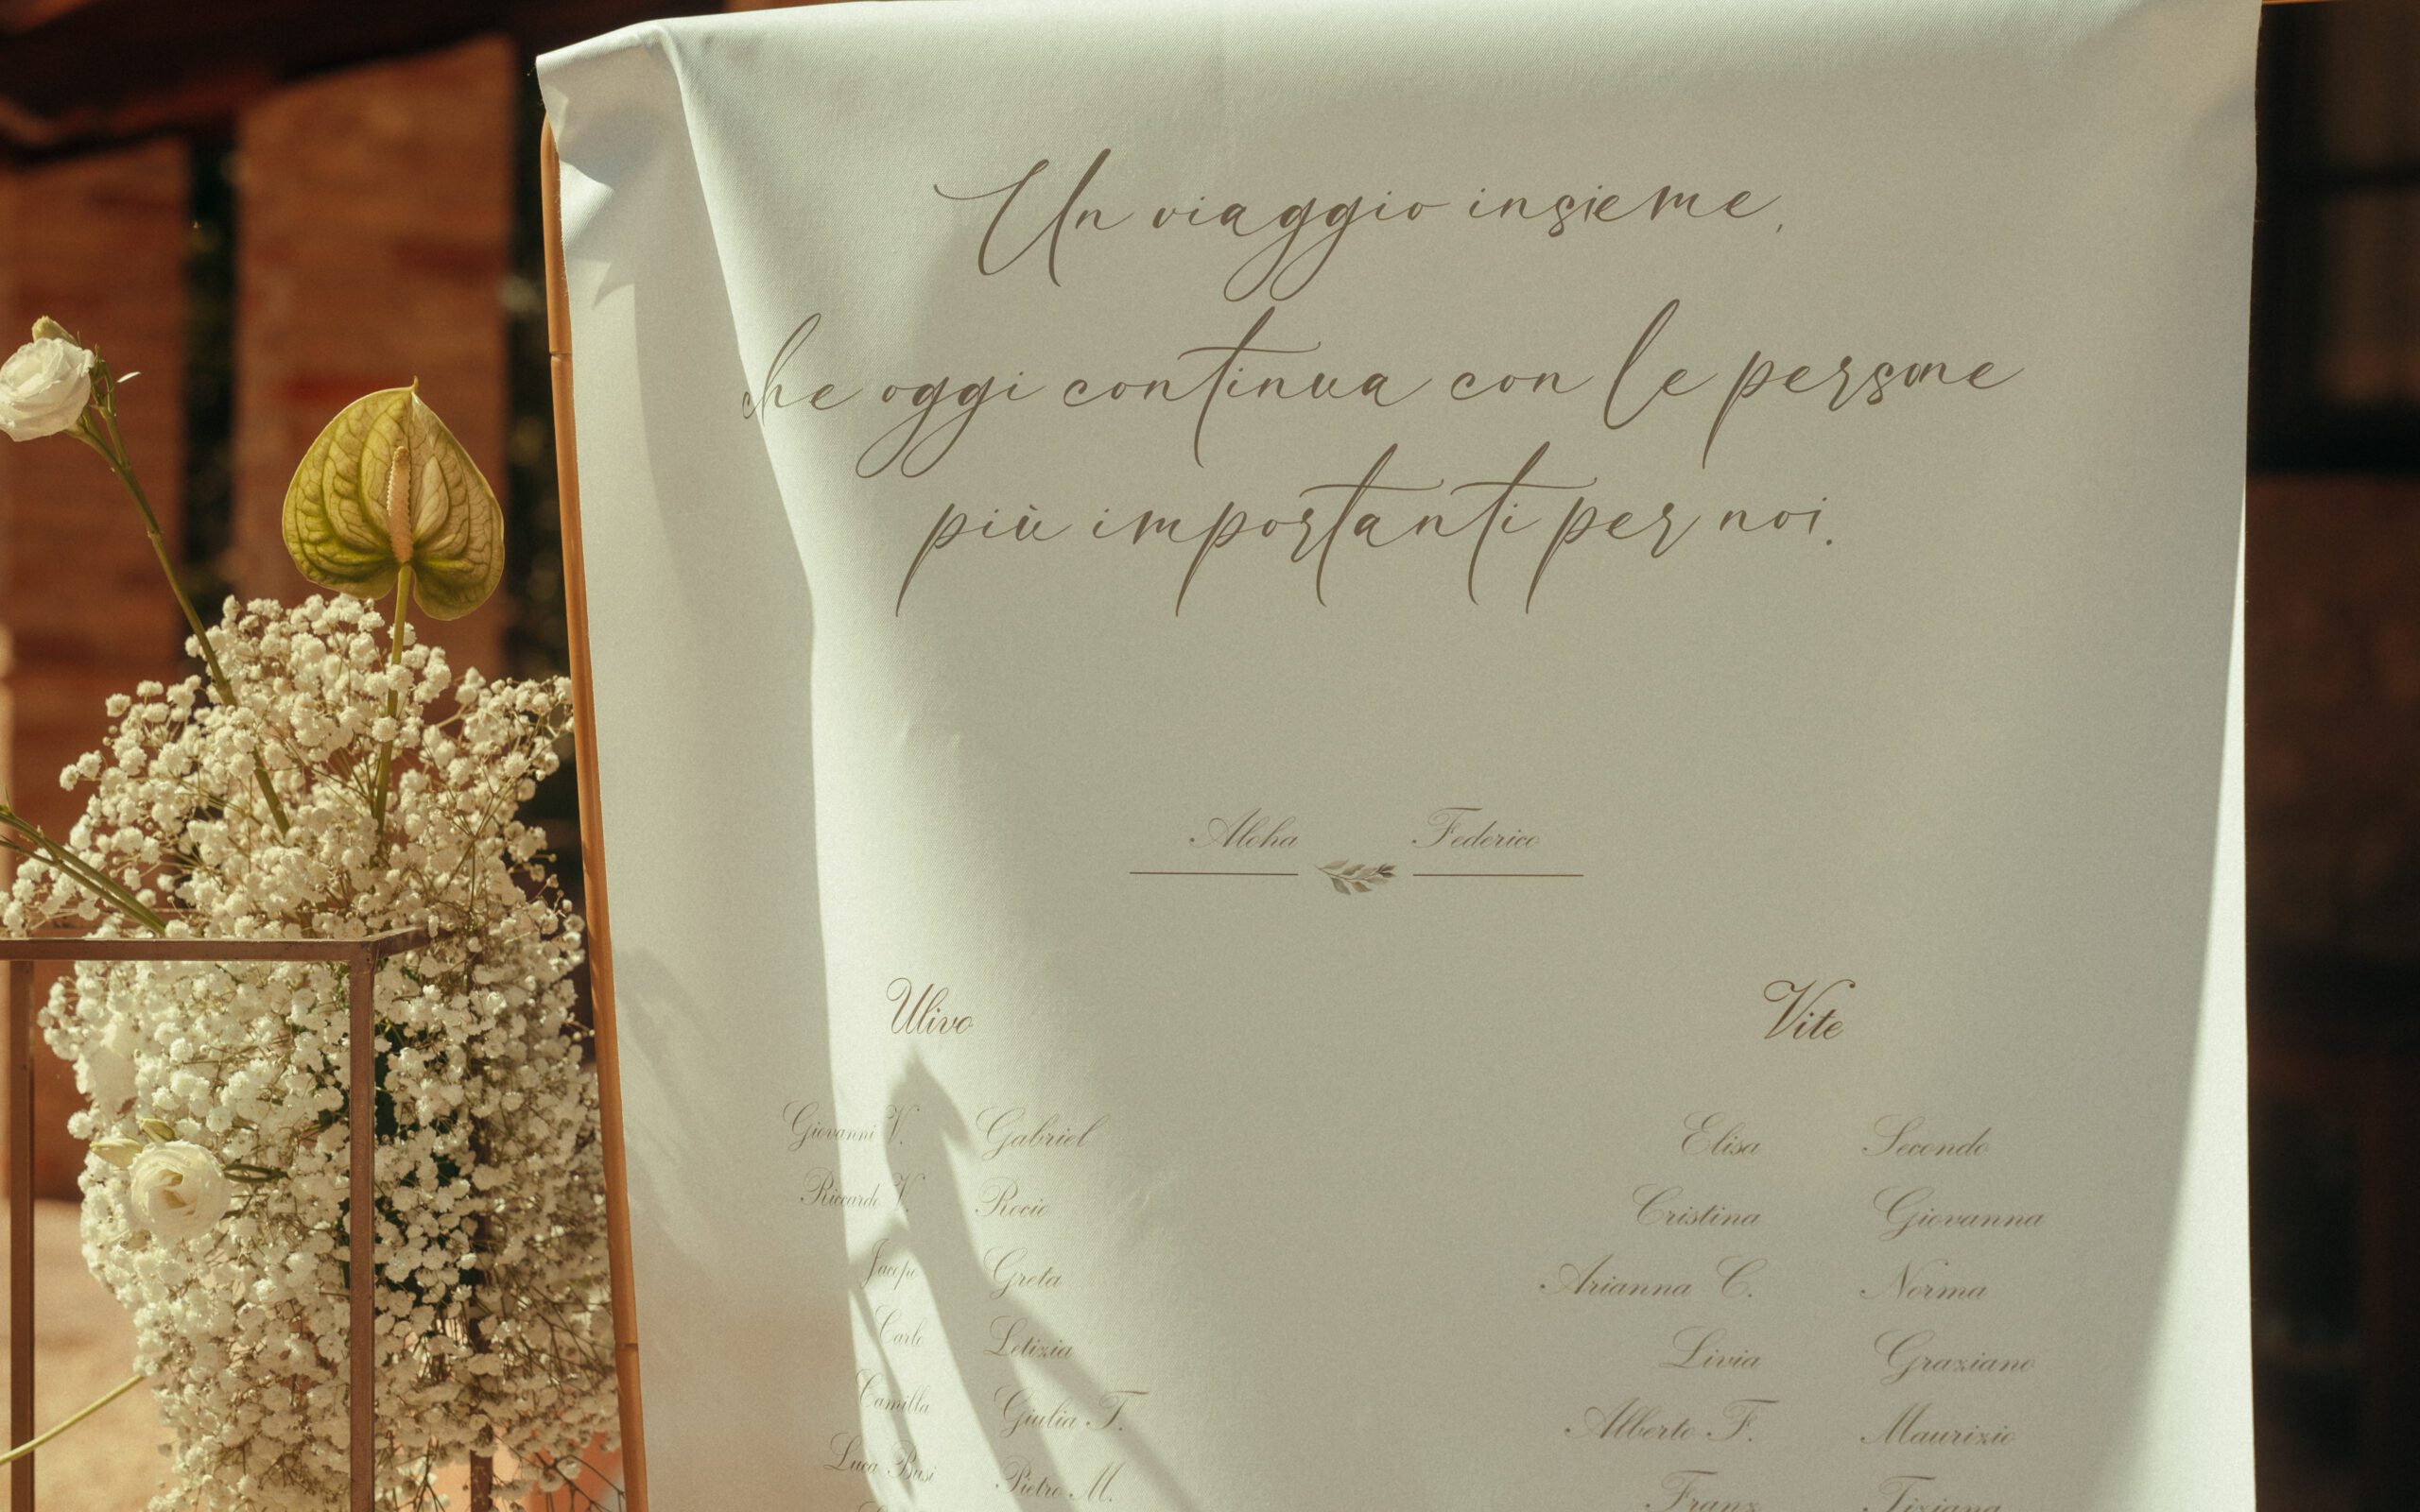 Un viaggio insieme,
che oggi continua con le persone
più importanti per noi.
Aloha Federico
Ulivo Vite
Giovanni V. Gabriel Elisa Secondo
Riccardo V. Rocio Cristina Giovanna
Jacopo Greta Arianna C. Norma
Carlo Letizia Livia Graziano
Camilla Giulia T. Alberto F. Maurizio
Luca Busi Pietro M. Franz Tiziana